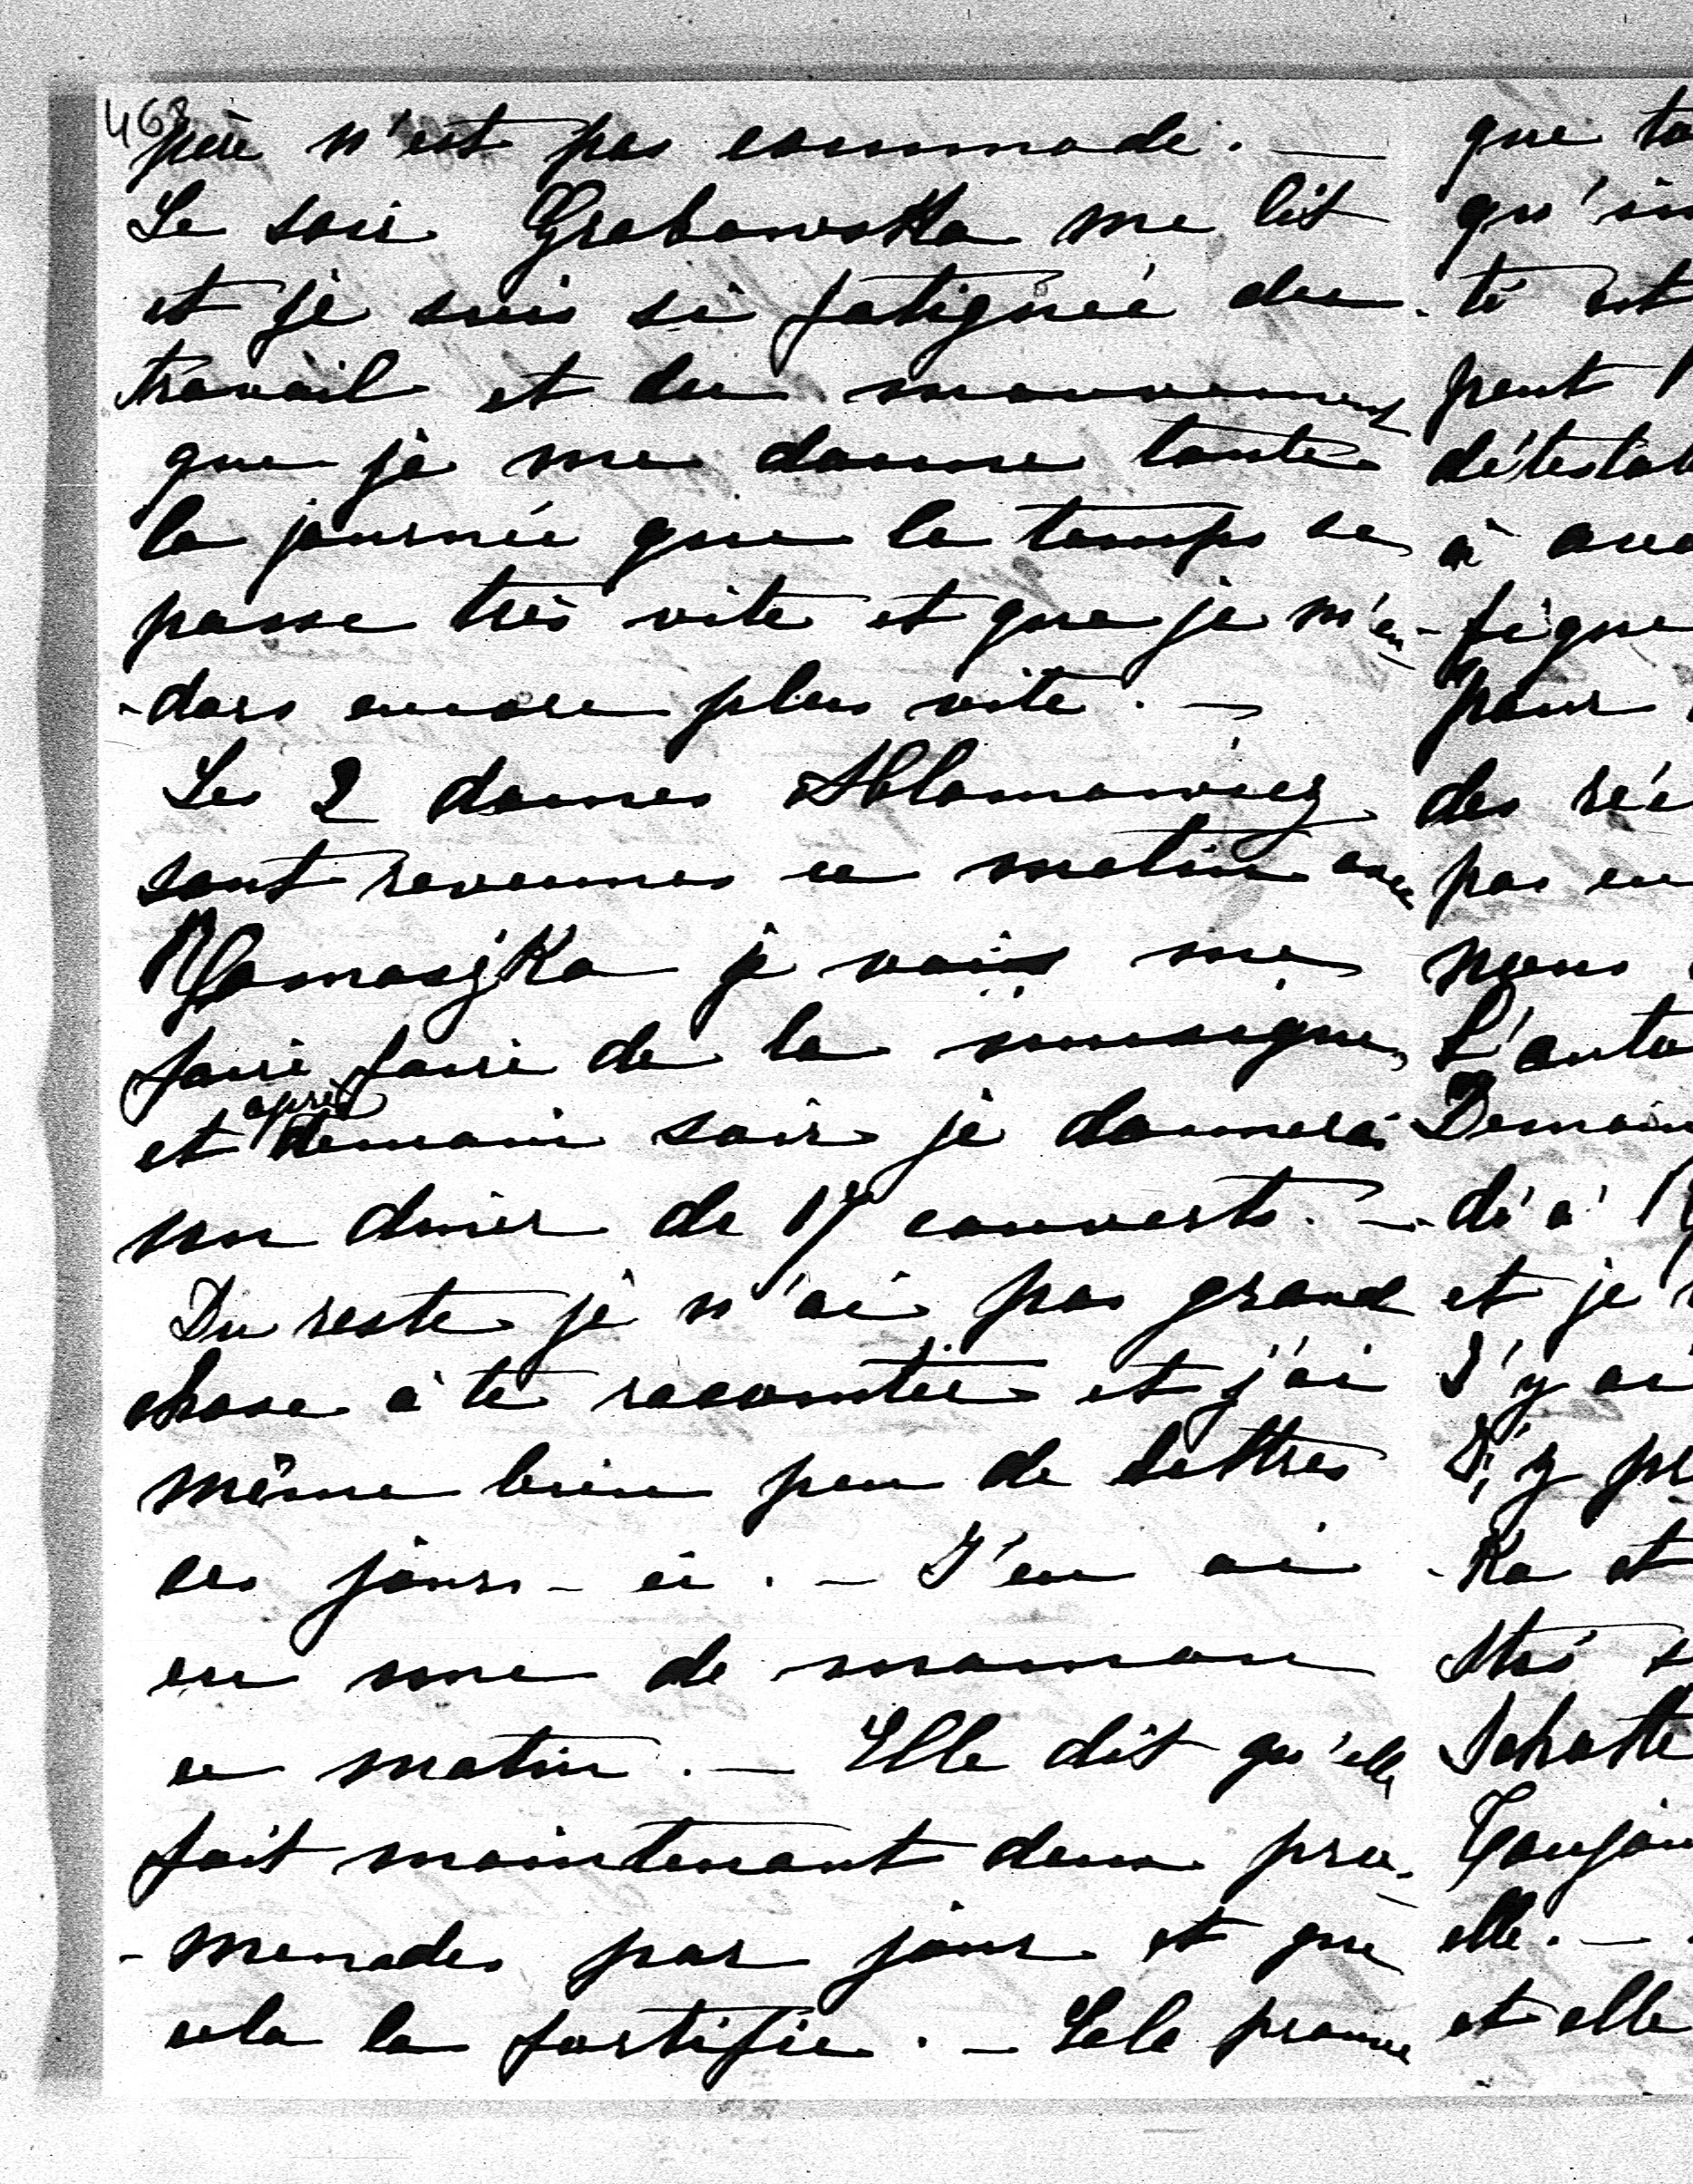 468
père n'est pas commode. —
Le soir Grabowska me lit
et je suis si fatiguée du
travail et du mouvement
que je me donne toute
la journée que le temps se
passe très vite et que je m'en-
-dors encore plus vite. —
Les 2 dames Ablamowicz
sont revenues ce matin avec
je vais me
faire faire de la musique
et après demain soir je donnerai
un diner de 17 couverts. —
Du reste je n'ai pas grand
chose à te raconter et j'ai
même bien peu de lettres
ces jours-ci. — J'en ai
eu une de maman
ce matin. — Elle dit qu'elle
fait maintenant deux pro-
-menades par jour et que
cela la fortifie. — Cela prouve
que
qu'
-té est
peut
à
-figue
pour
des
pas en
nous
L'
Demain
-di à
et je
J'y ai
J'y
-ka et
elle. —
et elle